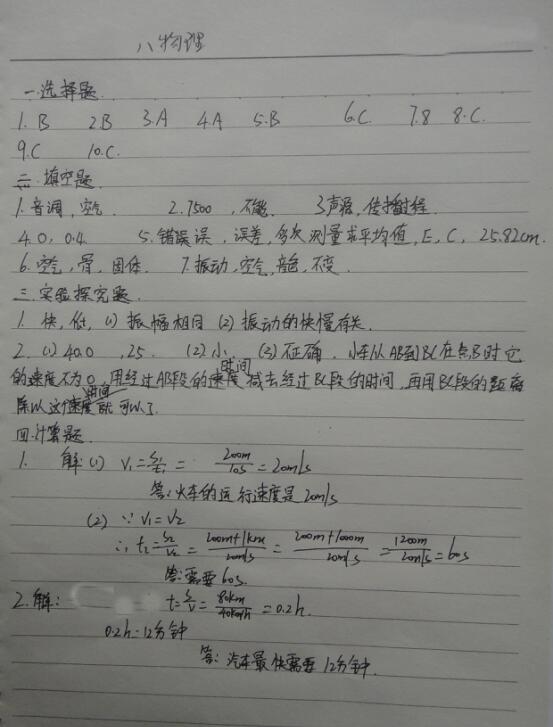 八物理
一.选择题.
1.B 2.B 3.A 4.A 5.B 6.C. 7.8 8.C.
9.C 10.C.
二.填空题.
1.音调,空气. 2.7500,不能. 3声源,传播过程.
4.0,0.4. 5.错误误,误差,多次测量求平均值,E,C,25.82cm.
6.空气,骨,固体. 7.振动,空气,音色,不变.
三.实验探究题.
1.快,低,(1)振幅相同(2)振动的快慢有关.
2.(1)40.0,25.(2)小.(3)不正确.小车从AB到BC在点B时它
的速度不为0,用经过AB段的速度时间减去经过BC段的时间,再用BC段的距离
除以这个速度时间就可以了.
四.计算题.
1. 解:(1) V₁=S₁/t₁= 200m/10s=20m/s
答:火车的运行速度是20m/s
(2) ∵V₁=V₂
∴t₂=S₂/V₂=200m+1km/20m/s=200m+1000m/20m/s=1200m/20m/s=60s
答:需要60s.
2.解: t=S/V=80km/40km/h=0.2h.
0.2h=12分钟
答:汽车最快需要12分钟.